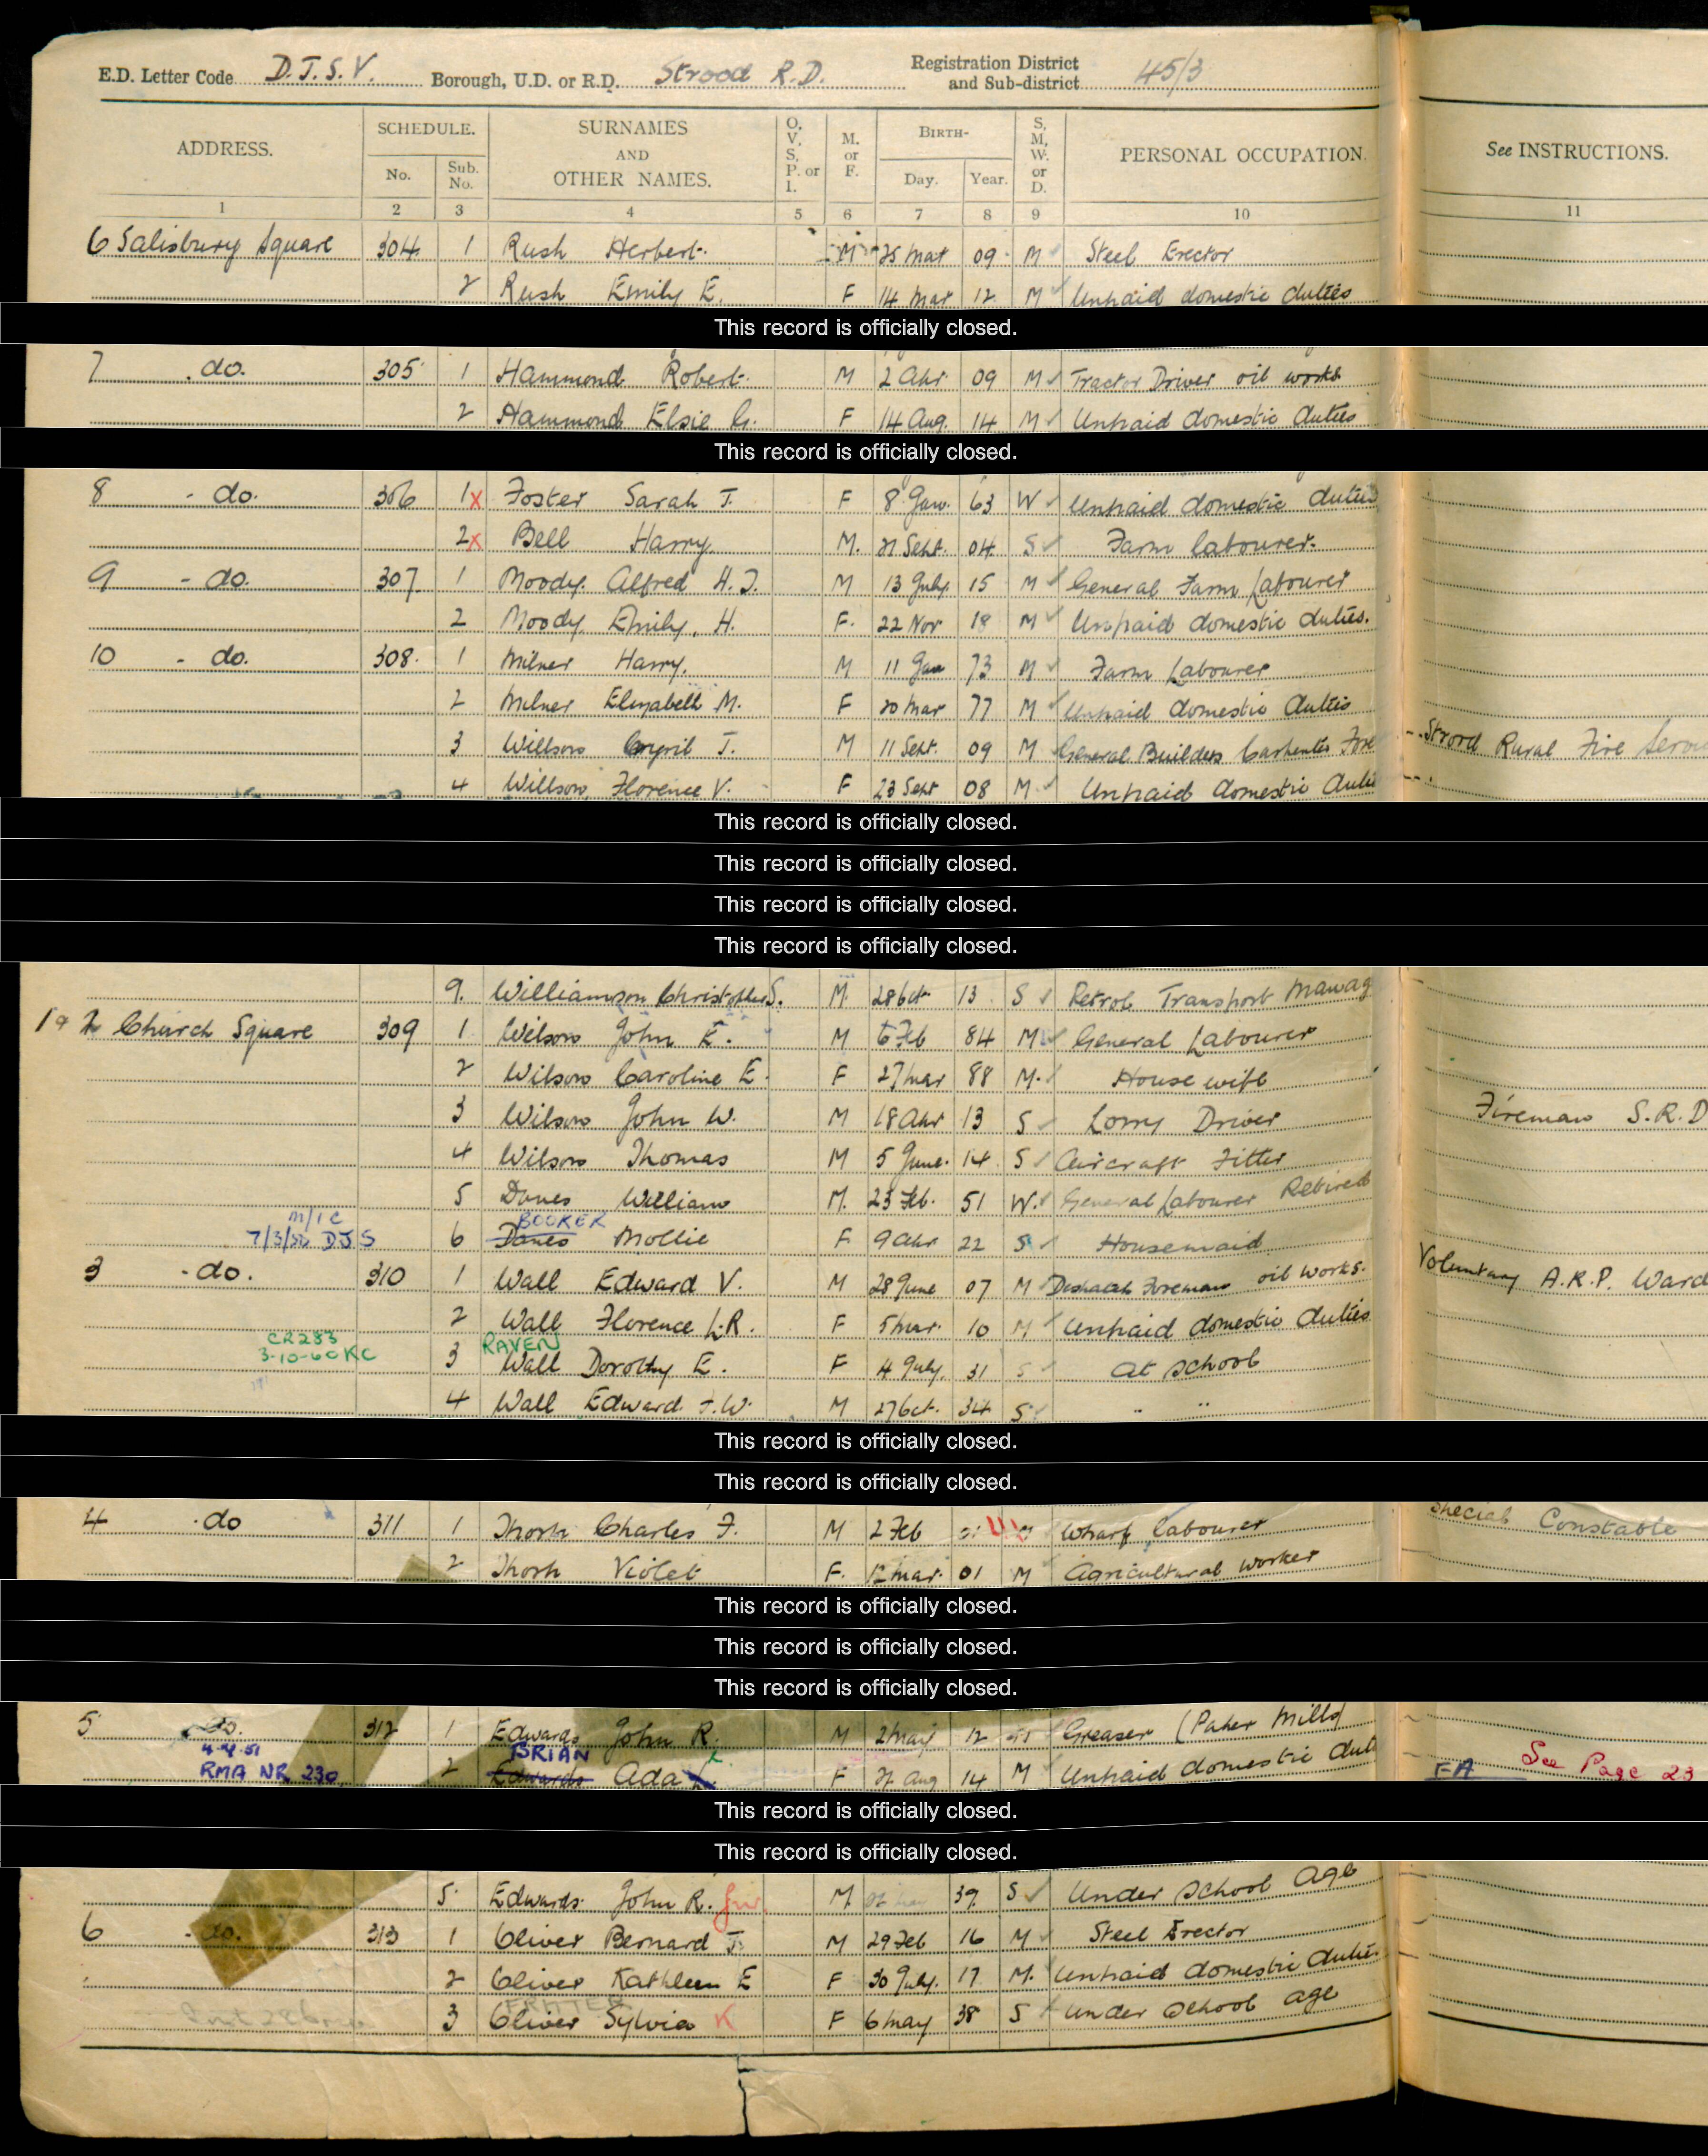 E.D. Letter Code D.J.S.V. Borough, U.D. or R.D. Strood R.D. Registration District and Sub-district 45/3
ADDRESS. SCHEDULE. No. Sub. No. SURNAMES AND OTHER NAMES. O, V, S, P, or I. M. or F. BIRTH- Day. Year. S, M, W. or D. PERSONAL OCCUPATION. See INSTRUCTIONS.
1 2 3 4 5 6 7 8 9 10 11
6 Salisbury Square 304 1 Rush Herbert. M 25 Mar 09 M Steel Erector
2 Rush Emily E. F 14 Mar 12 M Unpaid domestic duties
This record is officially closed.
7 do. 305 1 Hammond Robert. M 2 Apr 09 M Tractor Driver oil works
2 Hammond Elsie G. F 14 Aug. 14 M Unpaid domestic duties
This record is officially closed.
8 - do. 306 1 x Foster Sarah J. F 8 Jan. 63 W Unpaid domestic duties
2 x Bell Harry M. 21 Sept. 04 S Farm labourer.
9 - do. 307 1 Moody. Alfred H. J. M 13 July 15 M General Farm Labourer
2 Moody, Emily, H. F. 22 Nov 18 M Unpaid domestic duties.
10 - do. 308. 1 Milner Harry. M 11 Jan 73 M Farm Labourer
2 Milner Elizabeth M. F 20 Mar 77 M Unpaid domestic duties
3 Willson Cyril J. M 11 Sept. 09 M General Builders Carpenter Fore Strood Rural Fire Servi
4 Willson, Florence V. F 23 Sept 08 M Unpaid domestic dutie
This record is officially closed.
This record is officially closed.
This record is officially closed.
This record is officially closed.
9. Williamson Christopher S. M. 28 Oct 13 S Petrol Transport Manag
Church Square 309 1. Wilson John E. M 6 Feb 84 M General Labourer
2 Wilson Caroline E. F 27 Mar 88 M. Housewife
3 Wilson John W. M 18 Apr 13 S Lorry Driver Fireman S.R.D
4 Wilson Thomas M 5 June. 14 S Aircraft Fitter
5 Danes William M. 23 Feb. 51 W. General Labourer Retired
M/1 C BOOKER
7/3/50 DJS 6 Danes Mollie F 9 Apr 22 S Housemaid
3 - do. 310 1 Wall Edward V. M 28 June 07 M Despatch Foreman oil works. Voluntary A.R.P. Ward
2 Wall Florence L.R. F 5 Mar. 10 M Unpaid domestic duties
CR283 RAVEN
3-10-60 KC 3 Wall Dorothy E. F 4 July. 31 S At School
4 Wall Edward J.W. M 27 Oct. 34 S " "
This record is officially closed.
This record is officially closed.
4 . do 311 1 Thorn Charles F. M 2 Feb Wharf labourer Special Constable
2 Thorn Violet F. 12 Mar. 01 M Agricultural Worker
This record is officially closed.
This record is officially closed.
This record is officially closed.
5 do. 312 1 Edwards John R. M 2 May 12 Greaser (Paper Mills)
4.4.51 BRIAN
RMA NR 230 2 Edwards Ada L. F 27 Aug 14 M Unpaid domestic dut FA See Page 23
This record is officially closed.
This record is officially closed.
5. Edwards John R. Jnr. M 39 S Under School Age
6 - do. 313 1 Oliver Bernard J. M 29 Feb 16 M Steel Erector
2 Oliver Kathleen E F 30 July. 17 M. Unpaid domestic duties
3 Oliver Sylvia K F 6 May 38 S Under School age